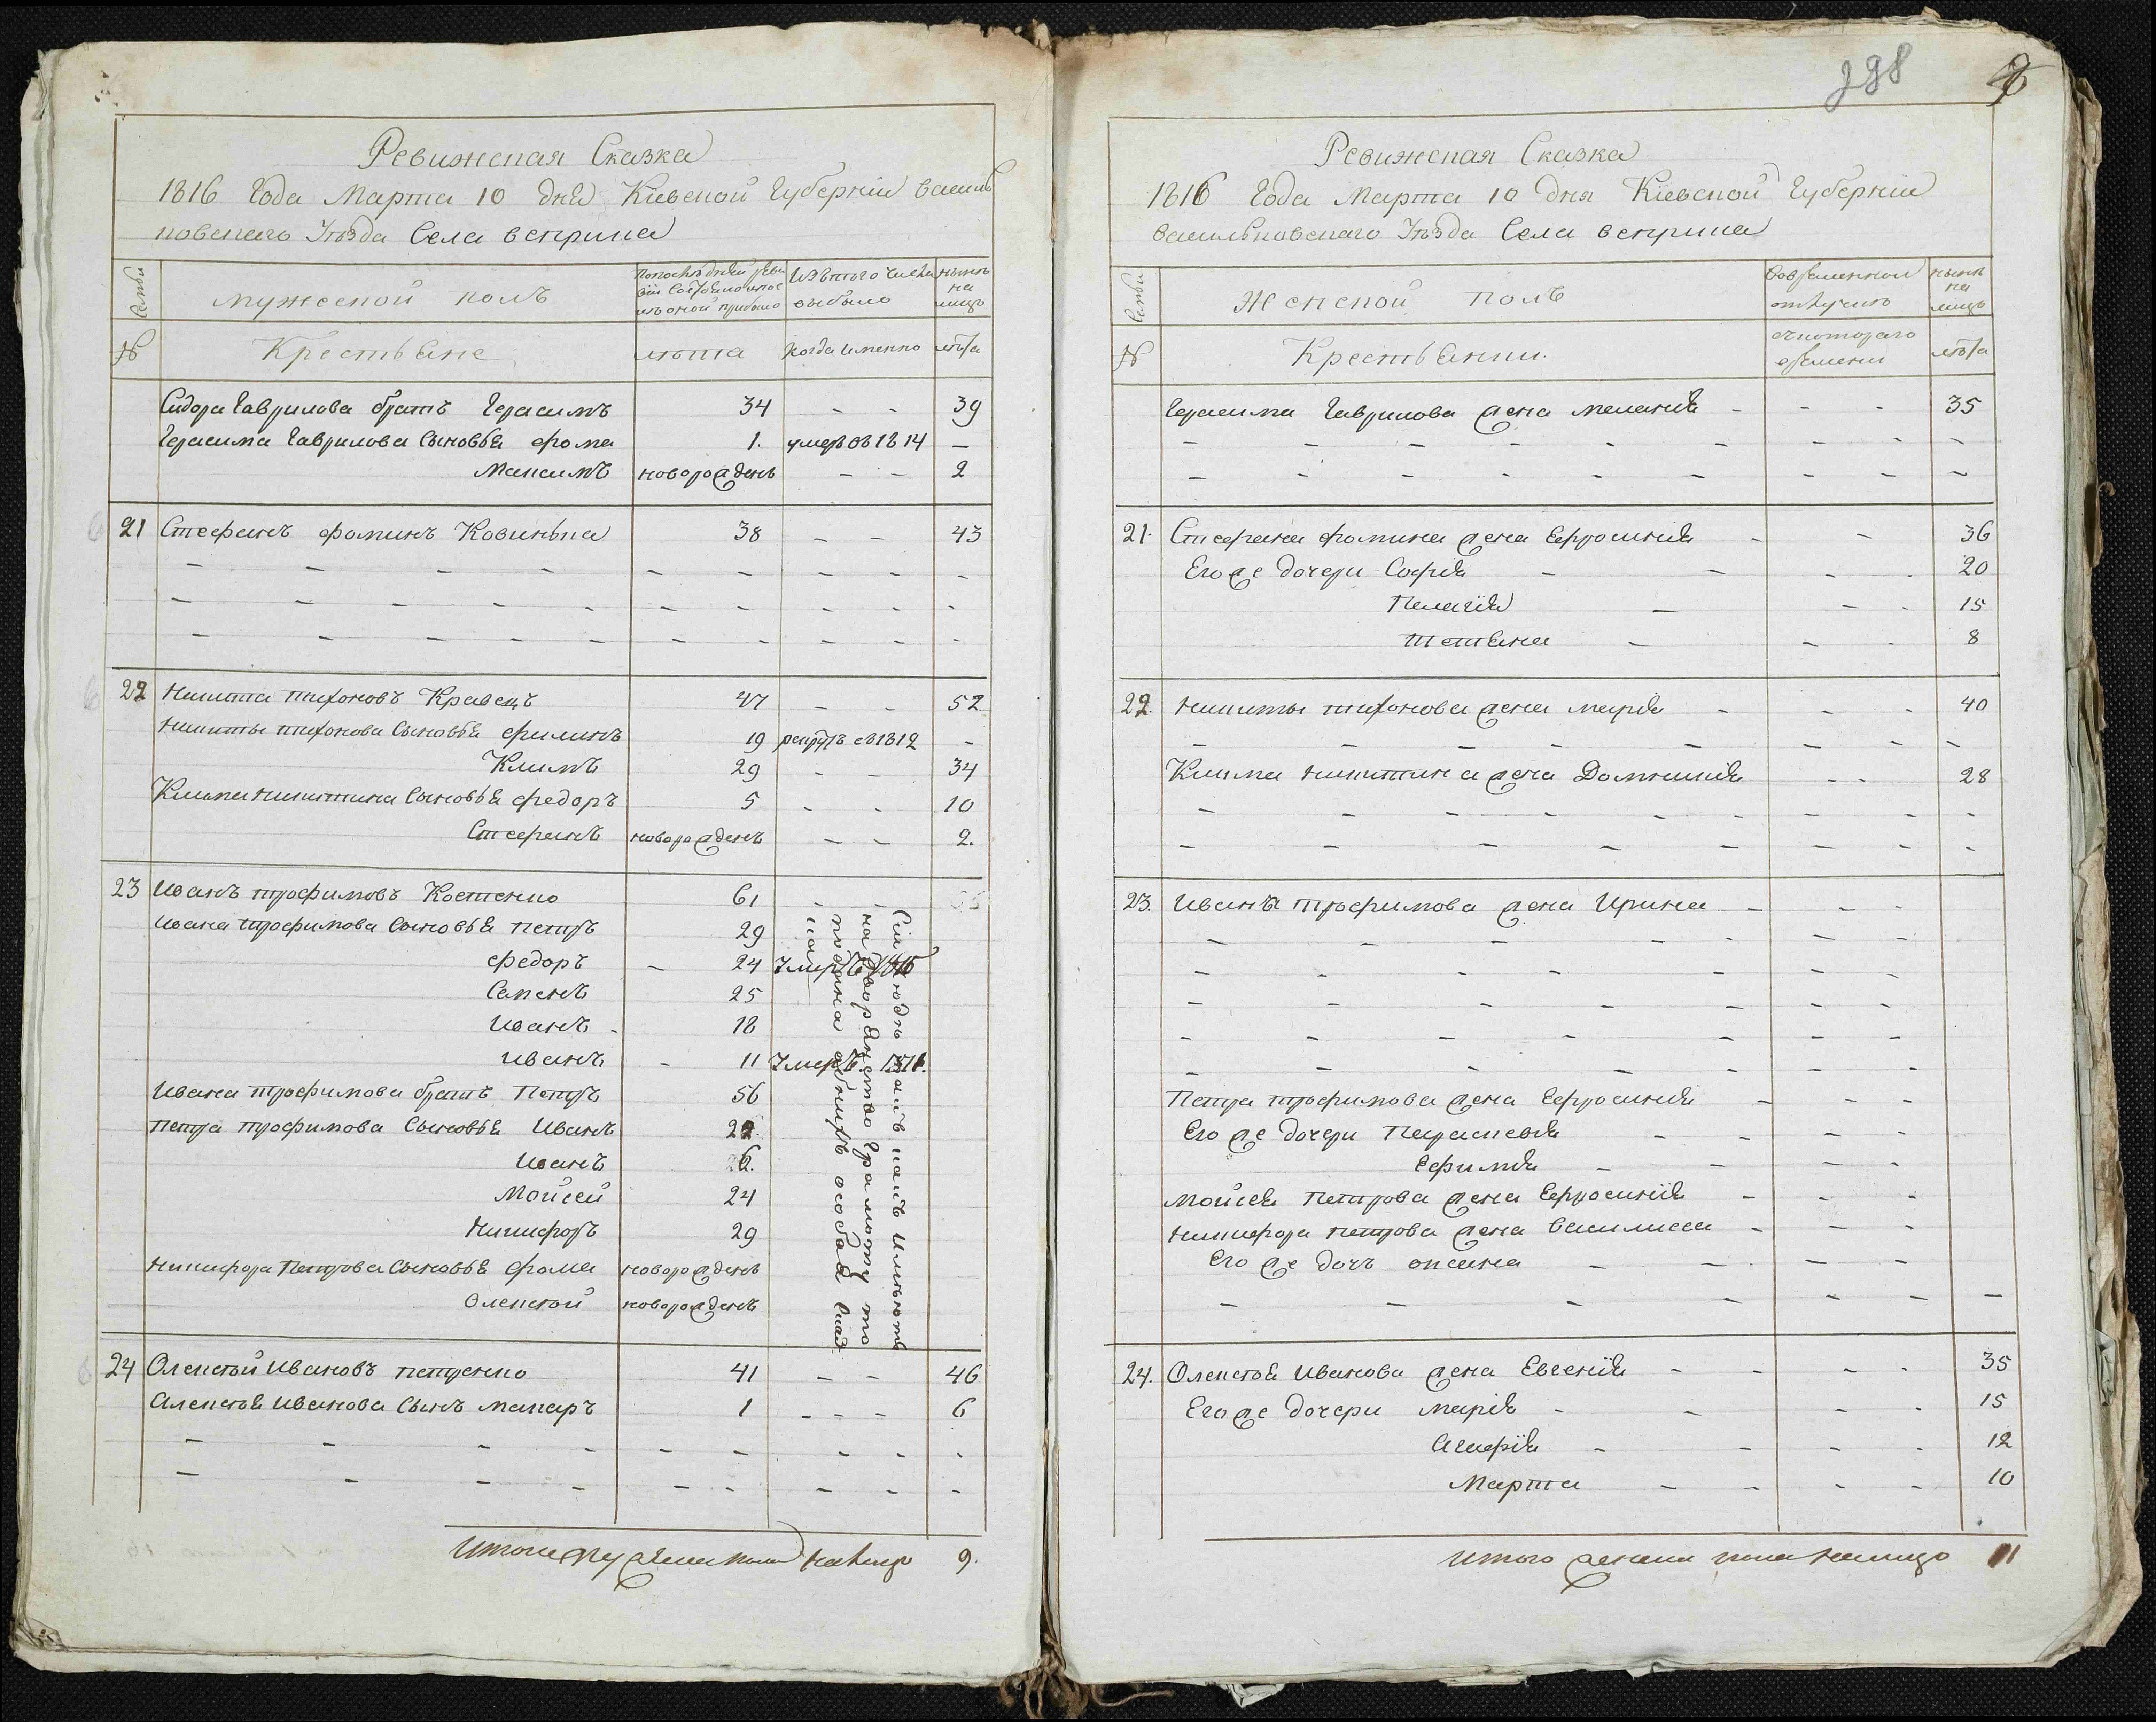 Ревижская Сказка
1816 Года Марта 10 дня Кіевской Губерніи Василь
ковскаго Уѣзда Села Веприка
Семьи
мужеской полъ
Попослѣдней реви
зіи состояло и пос
лѣ оной прибыло
Изъ того числа
выбыло
нынѣ
на
лицо
№
Крестьяне
лѣта
когда именно
лѣта
Сидора Гаврилова братъ Герасимъ 34 - - 39
Герасима Гаврилова Сыновья Фома 1. умеръ въ 1814 —
Максимъ новорожденъ - - 2
21 Стефанъ Фоминъ Ковинька 38 - - 43
22 Никита Тихоновъ Кравецъ 47 - - 52
Никиты Тихонова Сыновья Филипъ 19 рекрутъ въ 1812 -
Климъ 29 - - 34
Клима Никитина Сыновья Федоръ 5 - - 10
Стефанъ новорожденъ - - 2.
23 Иванъ Трофимовъ Костенко 61
Ивана Трофимова Сыновья Петръ 29
Федоръ - 24 Умеръ
Семенъ 25
Иванъ - 18
Иванъ - 11 Умеръ
Ивана Трофимова братъ Петръ 56
Петра Трофимова Сыновья Иванъ 22.
Иванъ 6.
Мойсей 24
Никифоръ 29
Никифора Петрова Сыновья Фома новорожденъ
Олексѣй новорожденъ
Сіи люди какъ Имѣютъ
на дворянство Грамоту то
подана обнихъ особая Сказ
ка
24 Олексѣй Ивановъ Петренко 41 - - 46
Алексѣя Иванова Сынъ Макаръ 1 - - - 6
Итого мужеска пола налицо 9.
298
Ревижская Сказка
1816 Года Марта 10 дня Кіевской Губерніи
Васильковскаго Уѣзда Села Веприка
Семьи
Женской полъ
Во временной
отлучкѣ
нынѣ
на
лицо
№
Крестьянки.
съ котораго
времени
лѣта
Герасима Гаврилова жена Меланія - - - 35
21. Стефана Фомина жена Ефросинія - - 36
Его же дочери Софія - - - - 20
Пелагія - - - 15
Тетяна - - - 8
22. Никиты Тихонова жена Марія - - - 40
Клима Никитина жена Домникія - - 28
23. Ивана Трофимова жена Ирина - - -
Петра Трофимова жена Ефросинія - - -
Его же дочери Параскевія - - - -
Ефимія - - - -
Мойсея Петрова жена Ефросинія - - -
Никифора Петрова жена Василиса - - -
Его же дочь Оксана - - - -
24. Олексѣя Иванова жена Евгенія - - - - 35
Его же дочери Марія - - - - 15
Агафія - - - - 12
Марта - - - - 10
Итого женска пола налицо 11